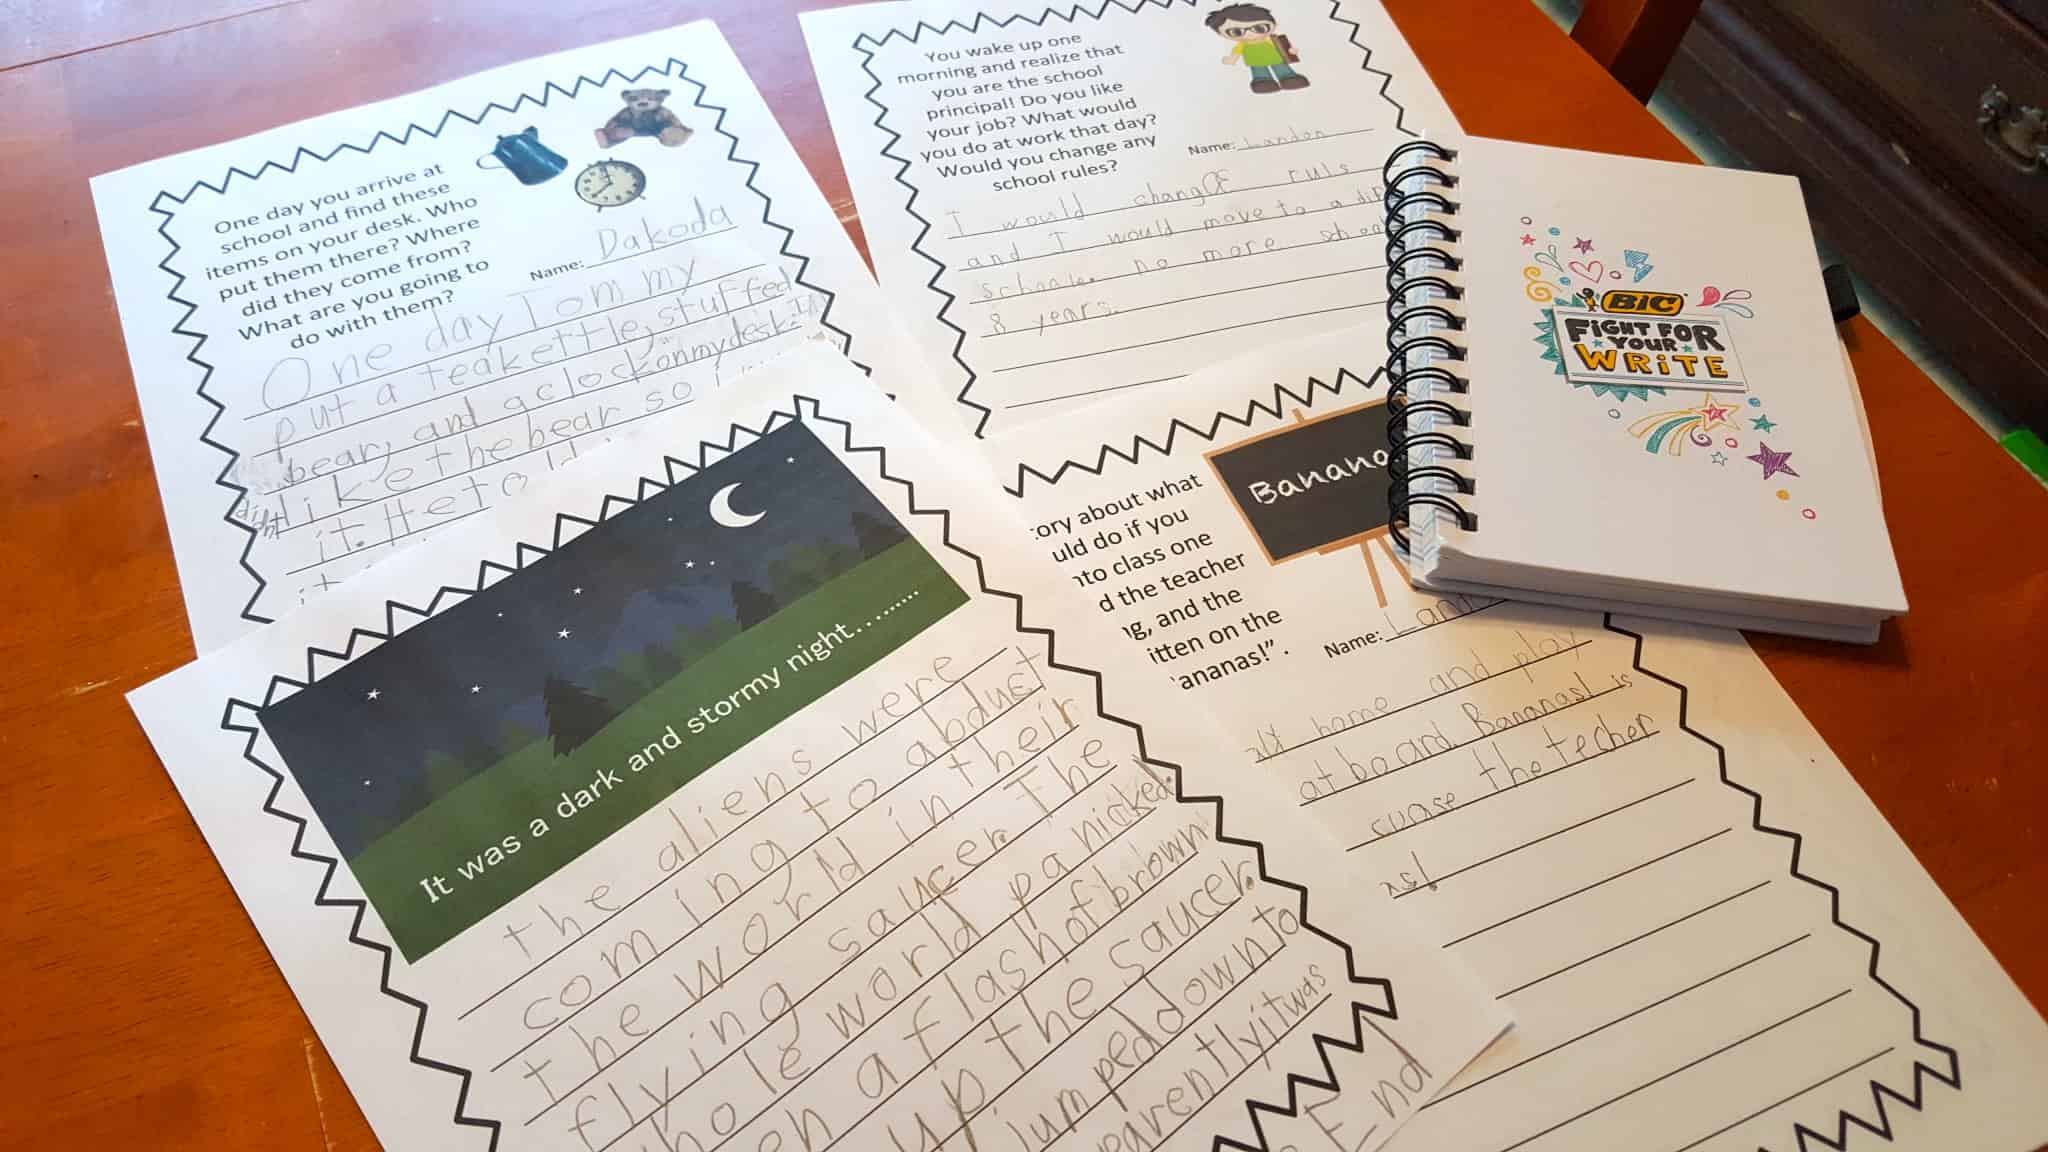 One day you arrive at
school and find these
items on your desk. Who
put them there? Where
did they come from?
What are you going to
do with them?
Name: Dakoda
One day Tommy
put a teakettle, stuffed
bear, and a clock on my desk. I
didnt like the bear so I
it. He to
You wake up one
morning and realize that
you are the school
principal! Do you like
your job? What would
you do at work that day?
Would you change any
school rules?
Name: Landon
I would change ruls
and I would move to a
schoole. no more
8 years.
BIC
FiGHT FOR
YOUR
WRiTE
It was a dark and stormy night.........
the aliens were
coming to abduct
the world in their
flying saucer. The
world panicked.
a flash of brown
up the saucer.
jumped down to
it was
End
ory about what
uld do if you
nto class one
d the teacher
ng, and the
itten on the
ananas!".
Banana
Name: Land
home and play
at board Bananas! is
cuase the techer
is!